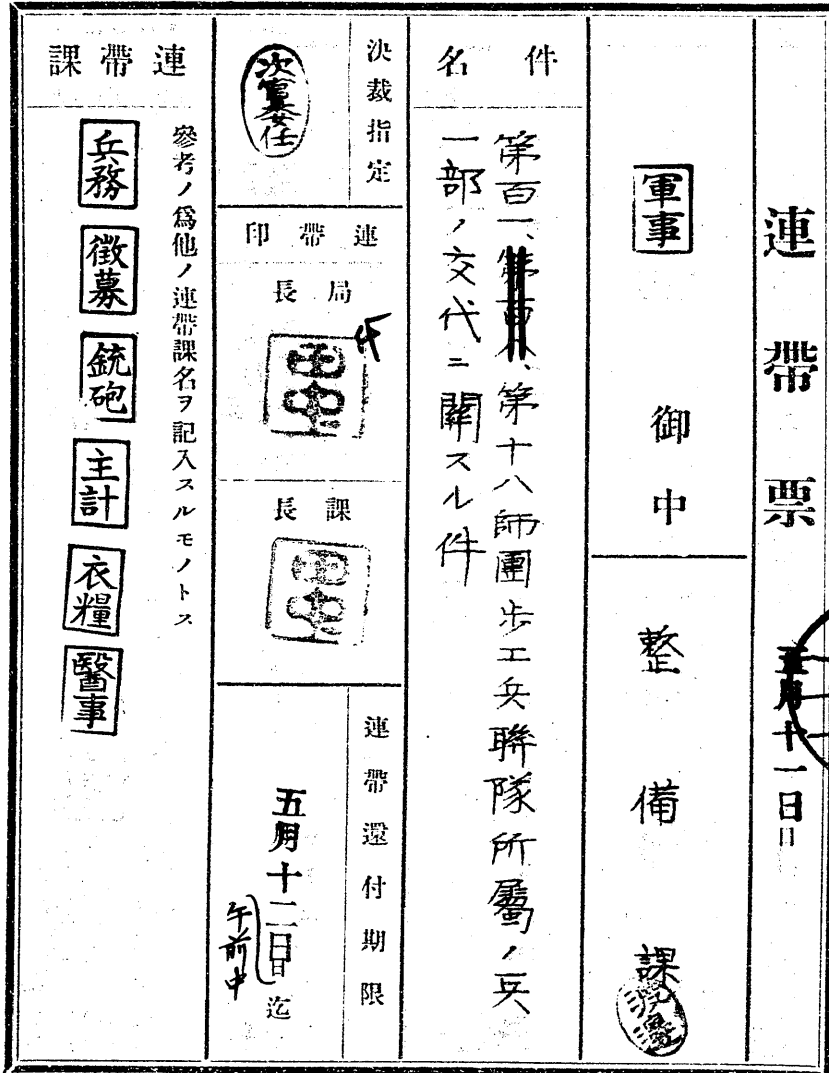 連帶票
五月十一日
軍事 御中
整備課
件名
第百一、第百八、第十八師團步工兵聯隊所屬ノ兵
一部ノ交代ニ關スル件
決裁指定
次官委任
連帶印
局長
課長
連帶還付期限
五月十二日迄
午前中
連帶課
參考ノ爲他ノ連帶課名ヲ記入スルモノトス
兵務
徵募
銃砲
主計
衣糧
醫事